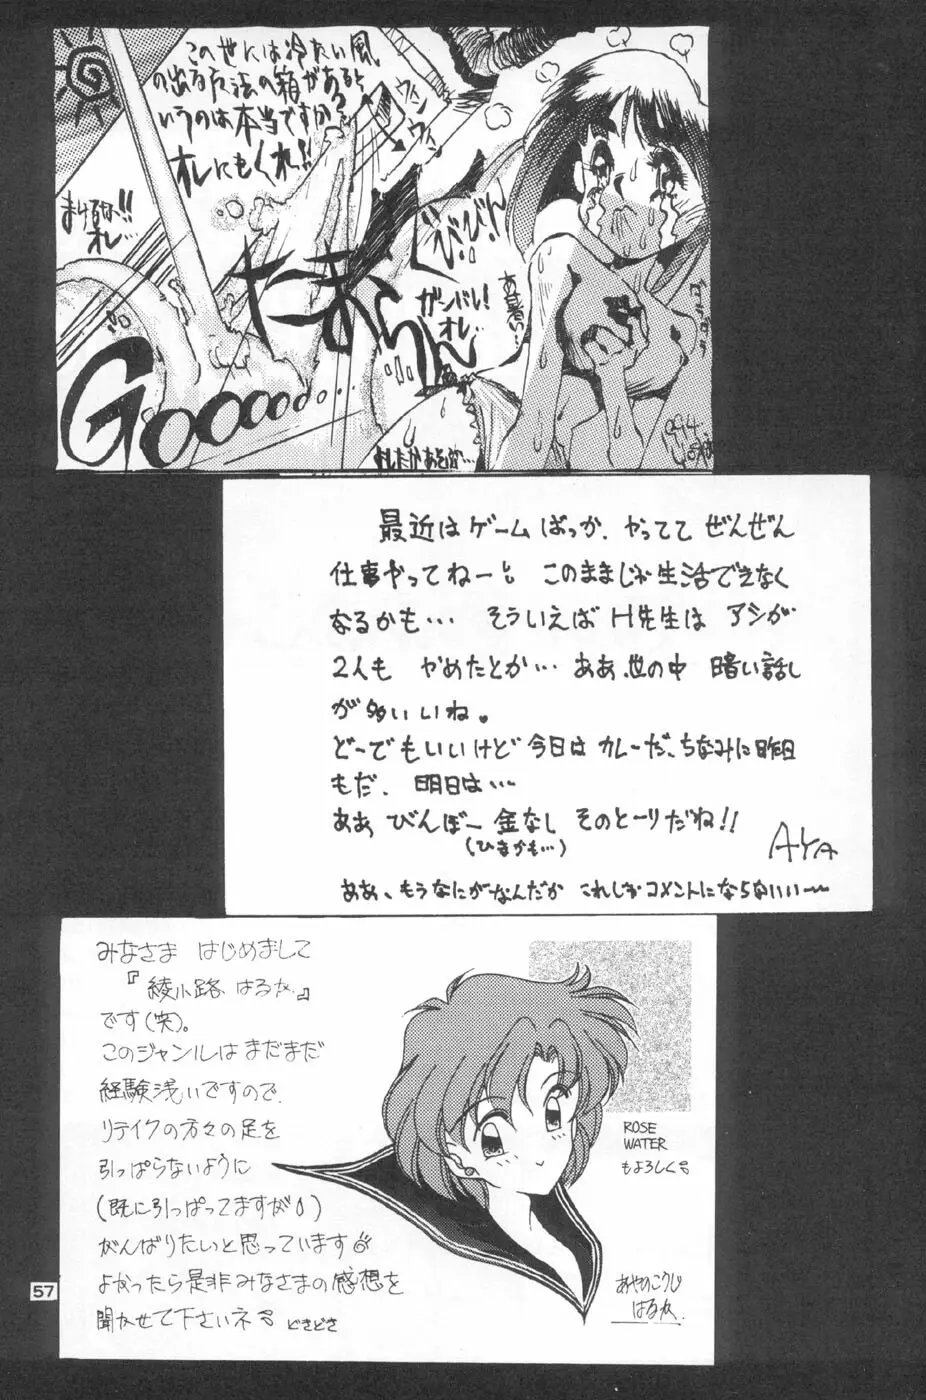 この世には冷たい風
の出る魔法の箱があると
いうのは本当ですか?
オレにもくれ!!
ウィン
ウィン
まけるな!!
オレ…
びんびん!!
ガンバレ!
オレ…
あ、暑い…
たまらん…
GOOOOOO...
'94
最近はゲームばっか、やってて ぜんぜん
仕事やってねーと このままじゃ生活できなく
なるかも… そういえば H先生は アシが
2人も やめたとか… ああ、世の中 暗い話し
が多いいね。
どーでもいいけど 今日は カレーだ、ちなみに昨日
もだ、明日は…
ああ びんぼー 金なし そのとーりだね!!
(ひまかも…)
AYA
ああ、もうなにがなんだか これじゃコメントにならないい〜
みなさま はじめまして
『綾小路 はるな』
です(笑)。
このジャンルは まだまだ
経験浅いですので、
リテイクの方々の足を
引っぱらないように
(既に引っぱってますが)
がんばりたいと思っています
よかったら是非みなさまの感想を
聞かせて下さいネ どきどき
ROSE
WATER
もよろしく
あやのこうじ
はるな.
57